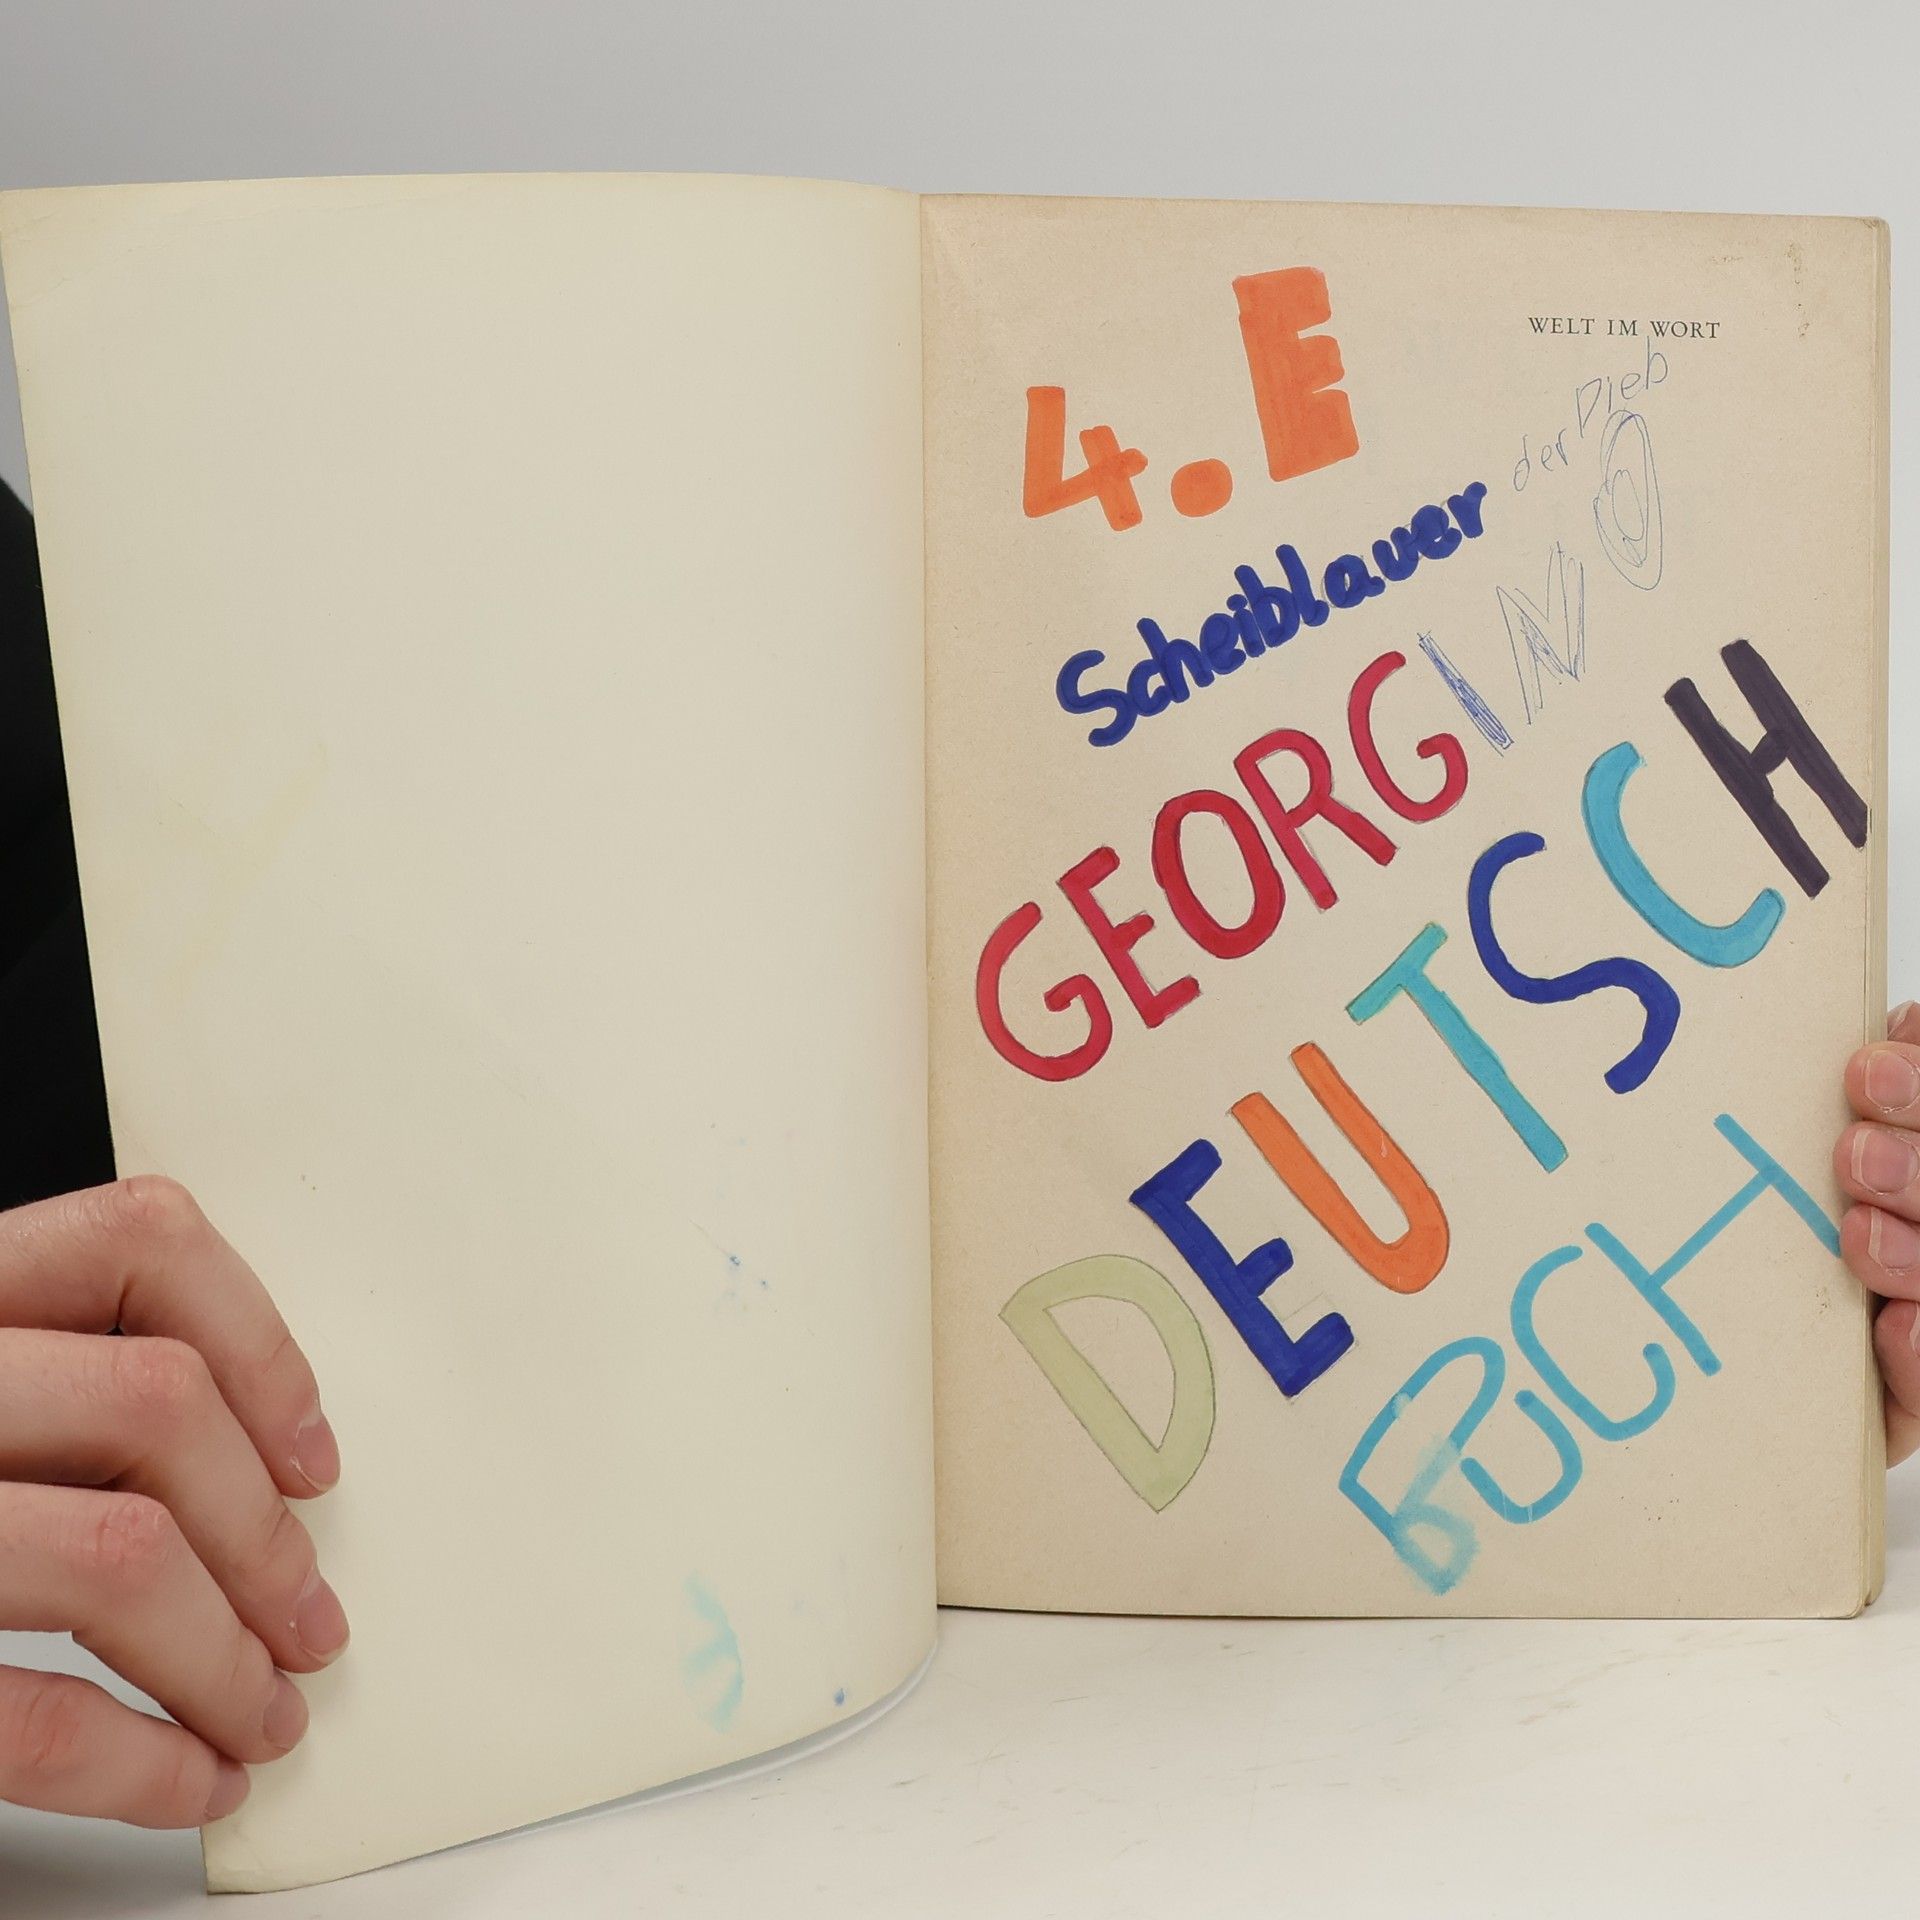 WELT IM WORT
4.E
Scheiblauer der Dieb
GEORGINO
DEUTSCH
BUCH